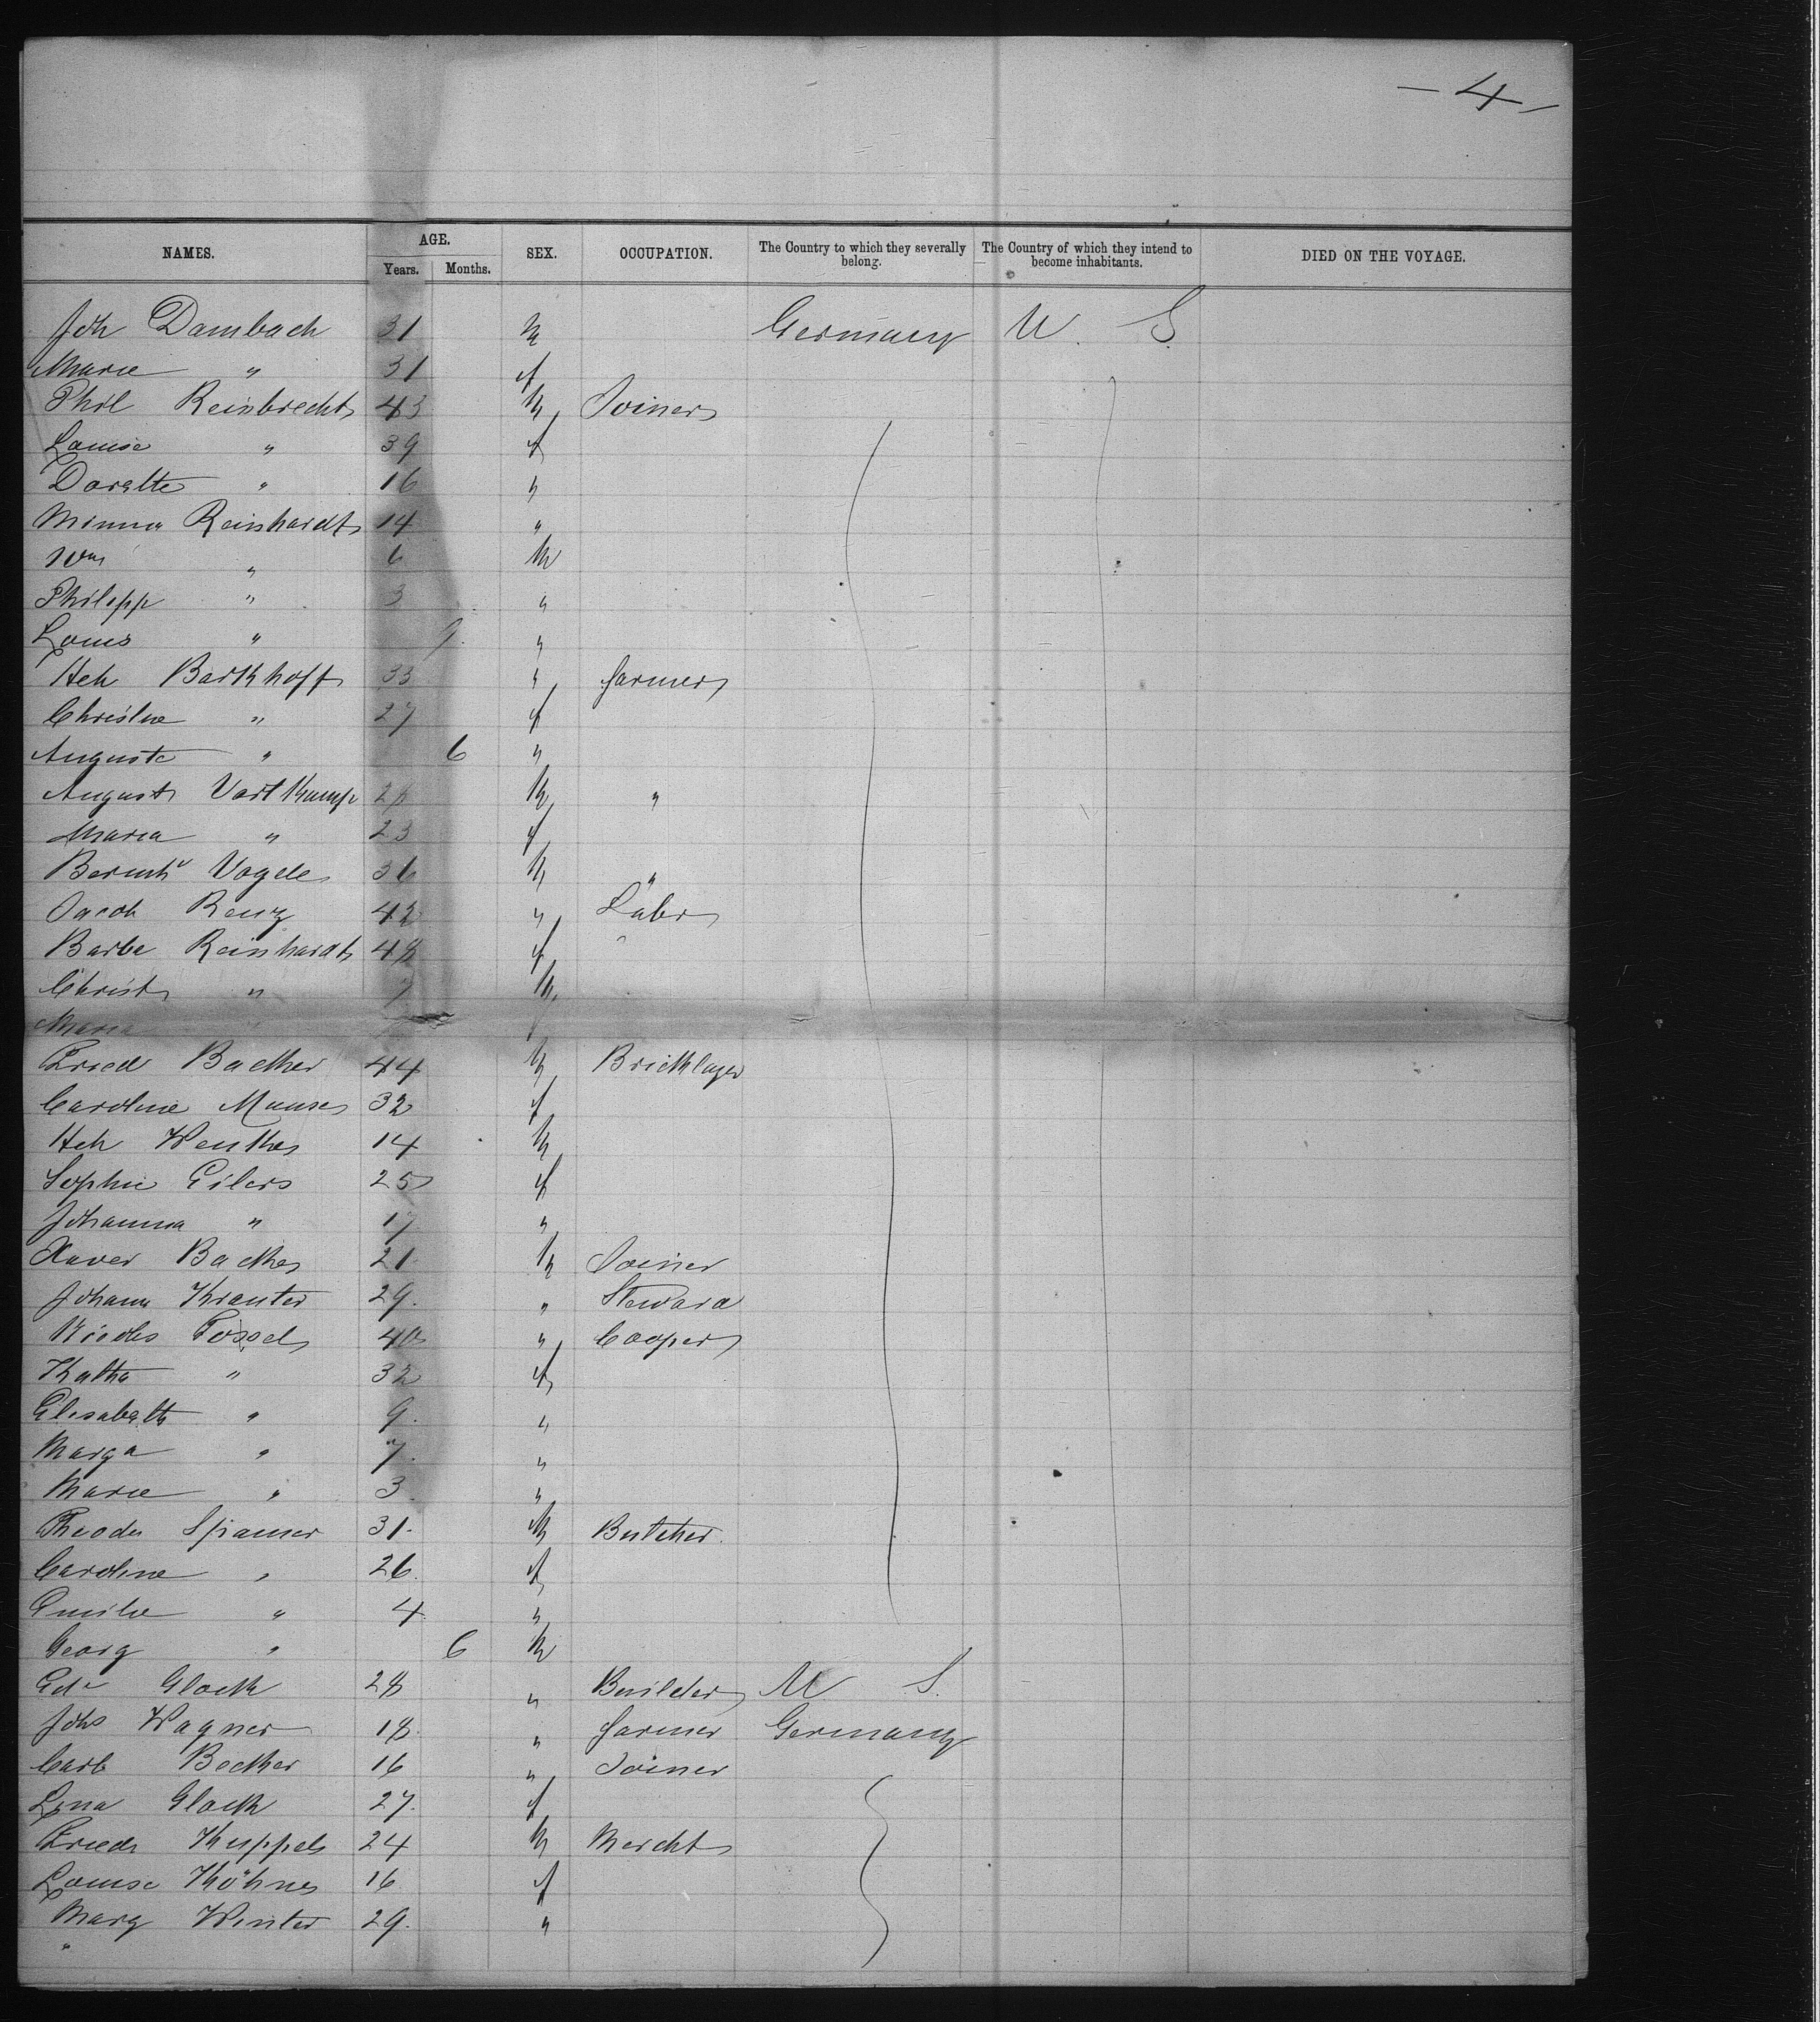 - 4 -
NAMES. AGE. SEX. OCCUPATION. The Country to which they severally belong. The Country of which they intend to become inhabitants. DIED ON THE VOYAGE.
Years. Months.
Joh Dambach 31 m Germany U. S.
Marie " 31 f
Phil Reinbrecht 43 m Joiner
Louise " 39 f
Dorette " 16 "
Minna Reinhardt 14 "
Wm " 6 m
Philipp " 3 "
Louis " 9 "
Hch Barkhoff 33 " farmer
Christne " 27 f
Auguste " 6 "
August Vortkamp m "
Maria " 23 f
Bernhd Vogele 36 m "
Jacob Renz 42 " Labr
Barba Reinhardt 48 f
Christ " 7 m
Maria " f
Fried Backer 44 m Bricklayer
Caroline Manse 32 f
Hch Wenthe 14 m
Sophie Eilers 25 f
Johanna " 17 "
Xaver Backes 21 m Joiner
Johann Krauter 29. " Steward
Nicols Tossel 40 " Cooper
Katha " 32 f
Elisabeth " 9. "
Marga " 7. "
Marie " 3 "
Theodr Spamer 31. m Butcher.
Caroline " 26. f
Emilie " 4 "
Georg " 6 m
Edu Glock 28 " Builder U S.
Johs Wagner 18. " farmer Germany
Carl Becker 16 " Joiner
Lina Glock 27. f
Friedr Kuppel 24 m Mercht
Louise Köhne 16 f
Marg Winter 29. "
"